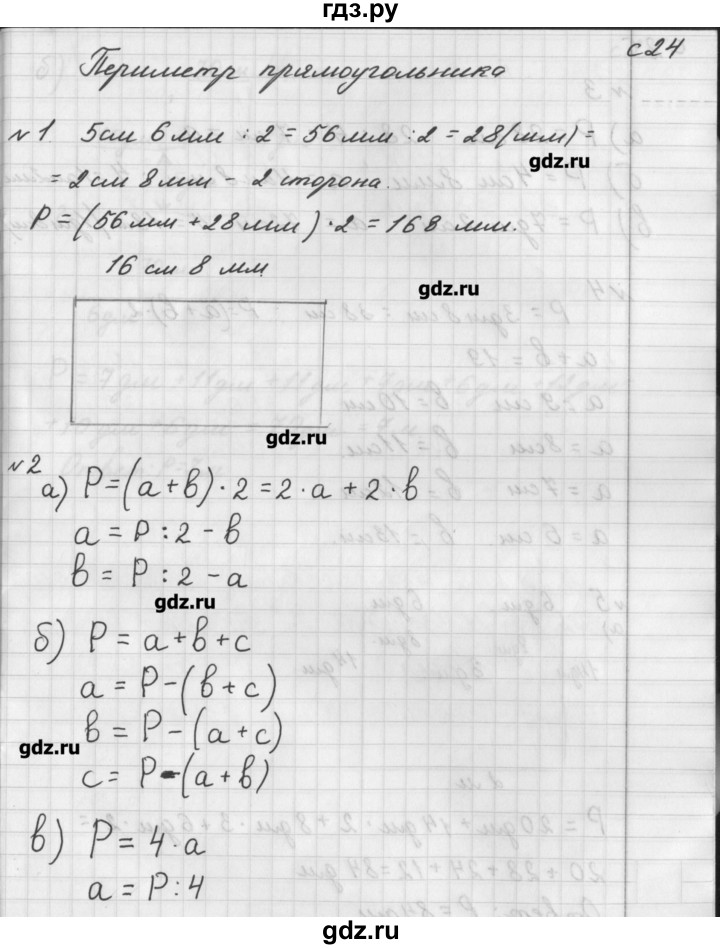 гдз.ру
с 24
Периметр прямоугольника
№1 5см 6мм : 2 = 56мм : 2 = 28(мм) =
gdz.ru
= 2см 8мм - 2 сторона.
P = (56мм + 28мм) · 2 = 168 мм.
16 см 8 мм
gdz.ru
gdz.ru
№2
а) P = (a + b) · 2 = 2 · a + 2 · b
a = P : 2 - b
b = P : 2 - a
gdz.ru
б) P = a + b + c
a = P - (b + c)
b = P - (a + c)
gdz.ru
c = P - (a + b)
в) P = 4 · a
a = P : 4
gdz.ru